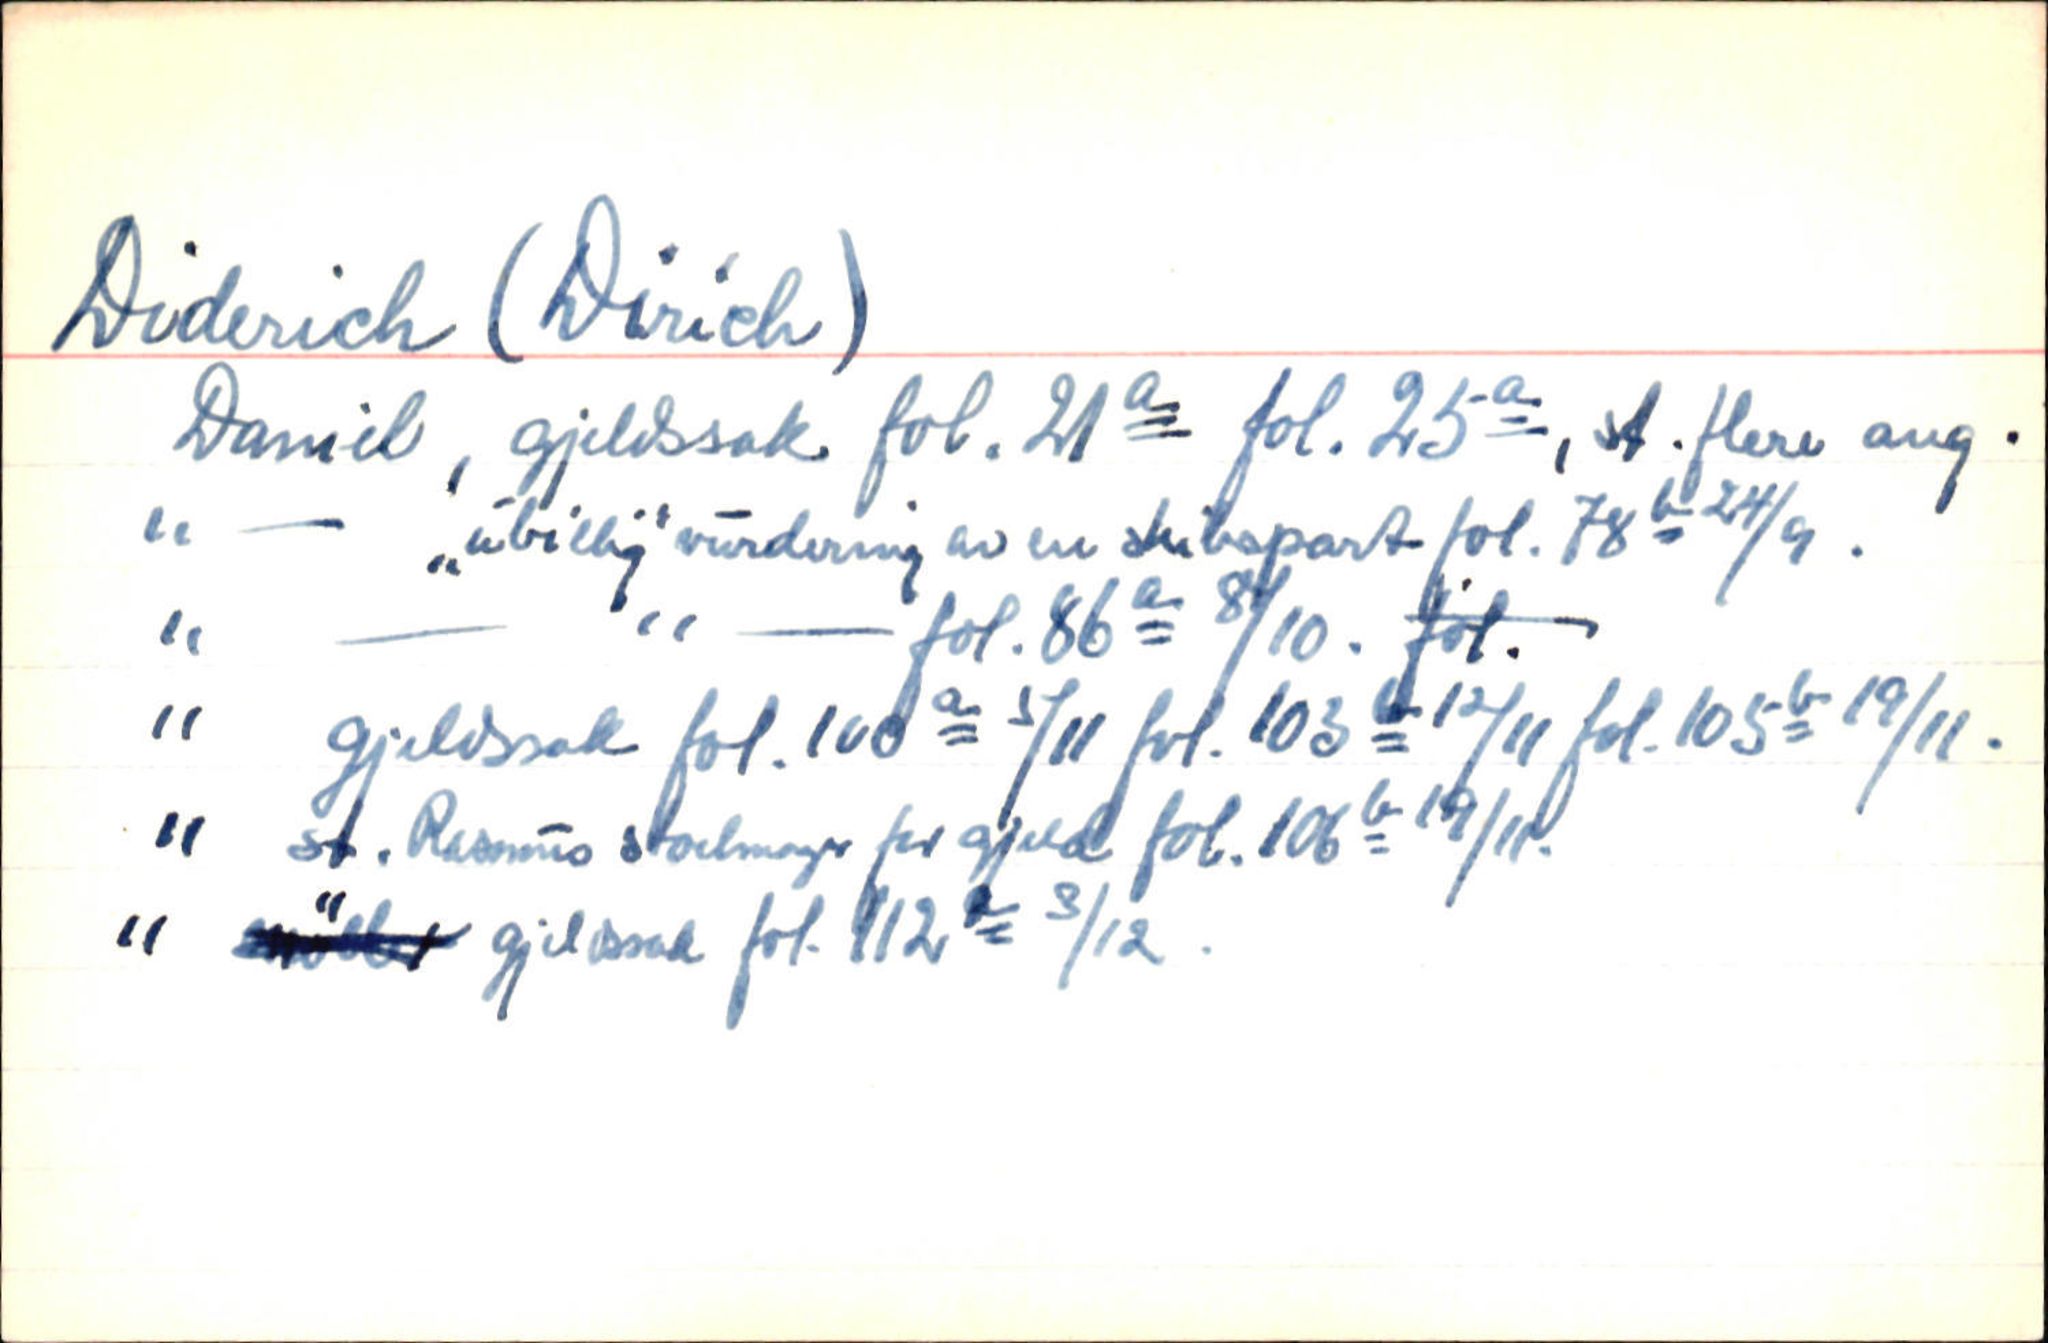 Diderich (Dirich)
Daniel, gjeldssak fol. 21a fol. 25a, st. flere ang.
" — „ubillig" vurdering av en skibspart fol. 78b 24/9.
" — " — fol. 86a 8/10. fol.
" gjeldssak fol. 100a 5/11 fol. 103b 12/11 fol. 105b 19/11.
" st. Rasmus stoelmager for gjeld fol. 106b 19/11.
" " gjeldssak fol. 112 3/12.